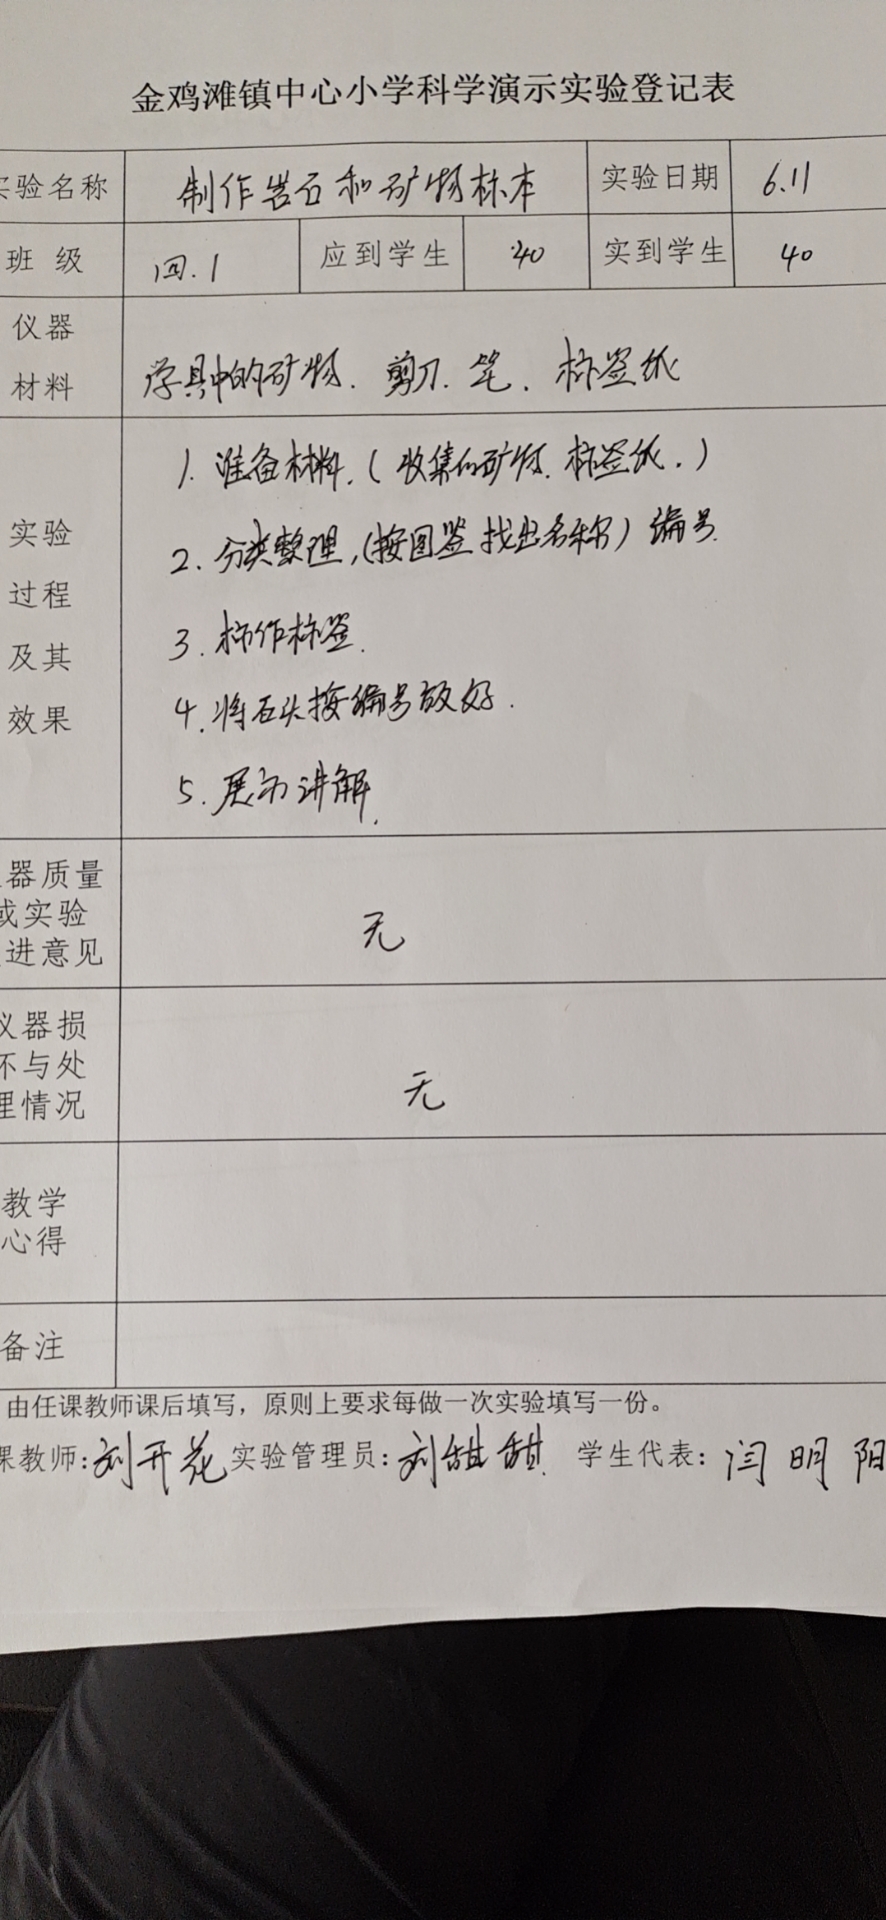 金鸡滩镇中心小学科学演示实验登记表
实验名称 制作岩石和矿物标本 实验日期 6.11
班 级 四.1 应到学生 40 实到学生 40
仪器
材料
学具中的矿物、剪刀、笔、标签纸
实验
过程
及其
效果
1. 准备材料.(收集的矿物、标签纸.)
2. 分类整理,(按图鉴找出名称)编号.
3. 标作标签.
4. 将石头按编号放好.
5. 展示讲解.
器质量
或实验
进意见
无
仪器损
坏与处
理情况
无
教学
心得
备注
由任课教师课后填写，原则上要求每做一次实验填写一份。
课教师:刘开花 实验管理员:刘甜甜 学生代表:闫明阳